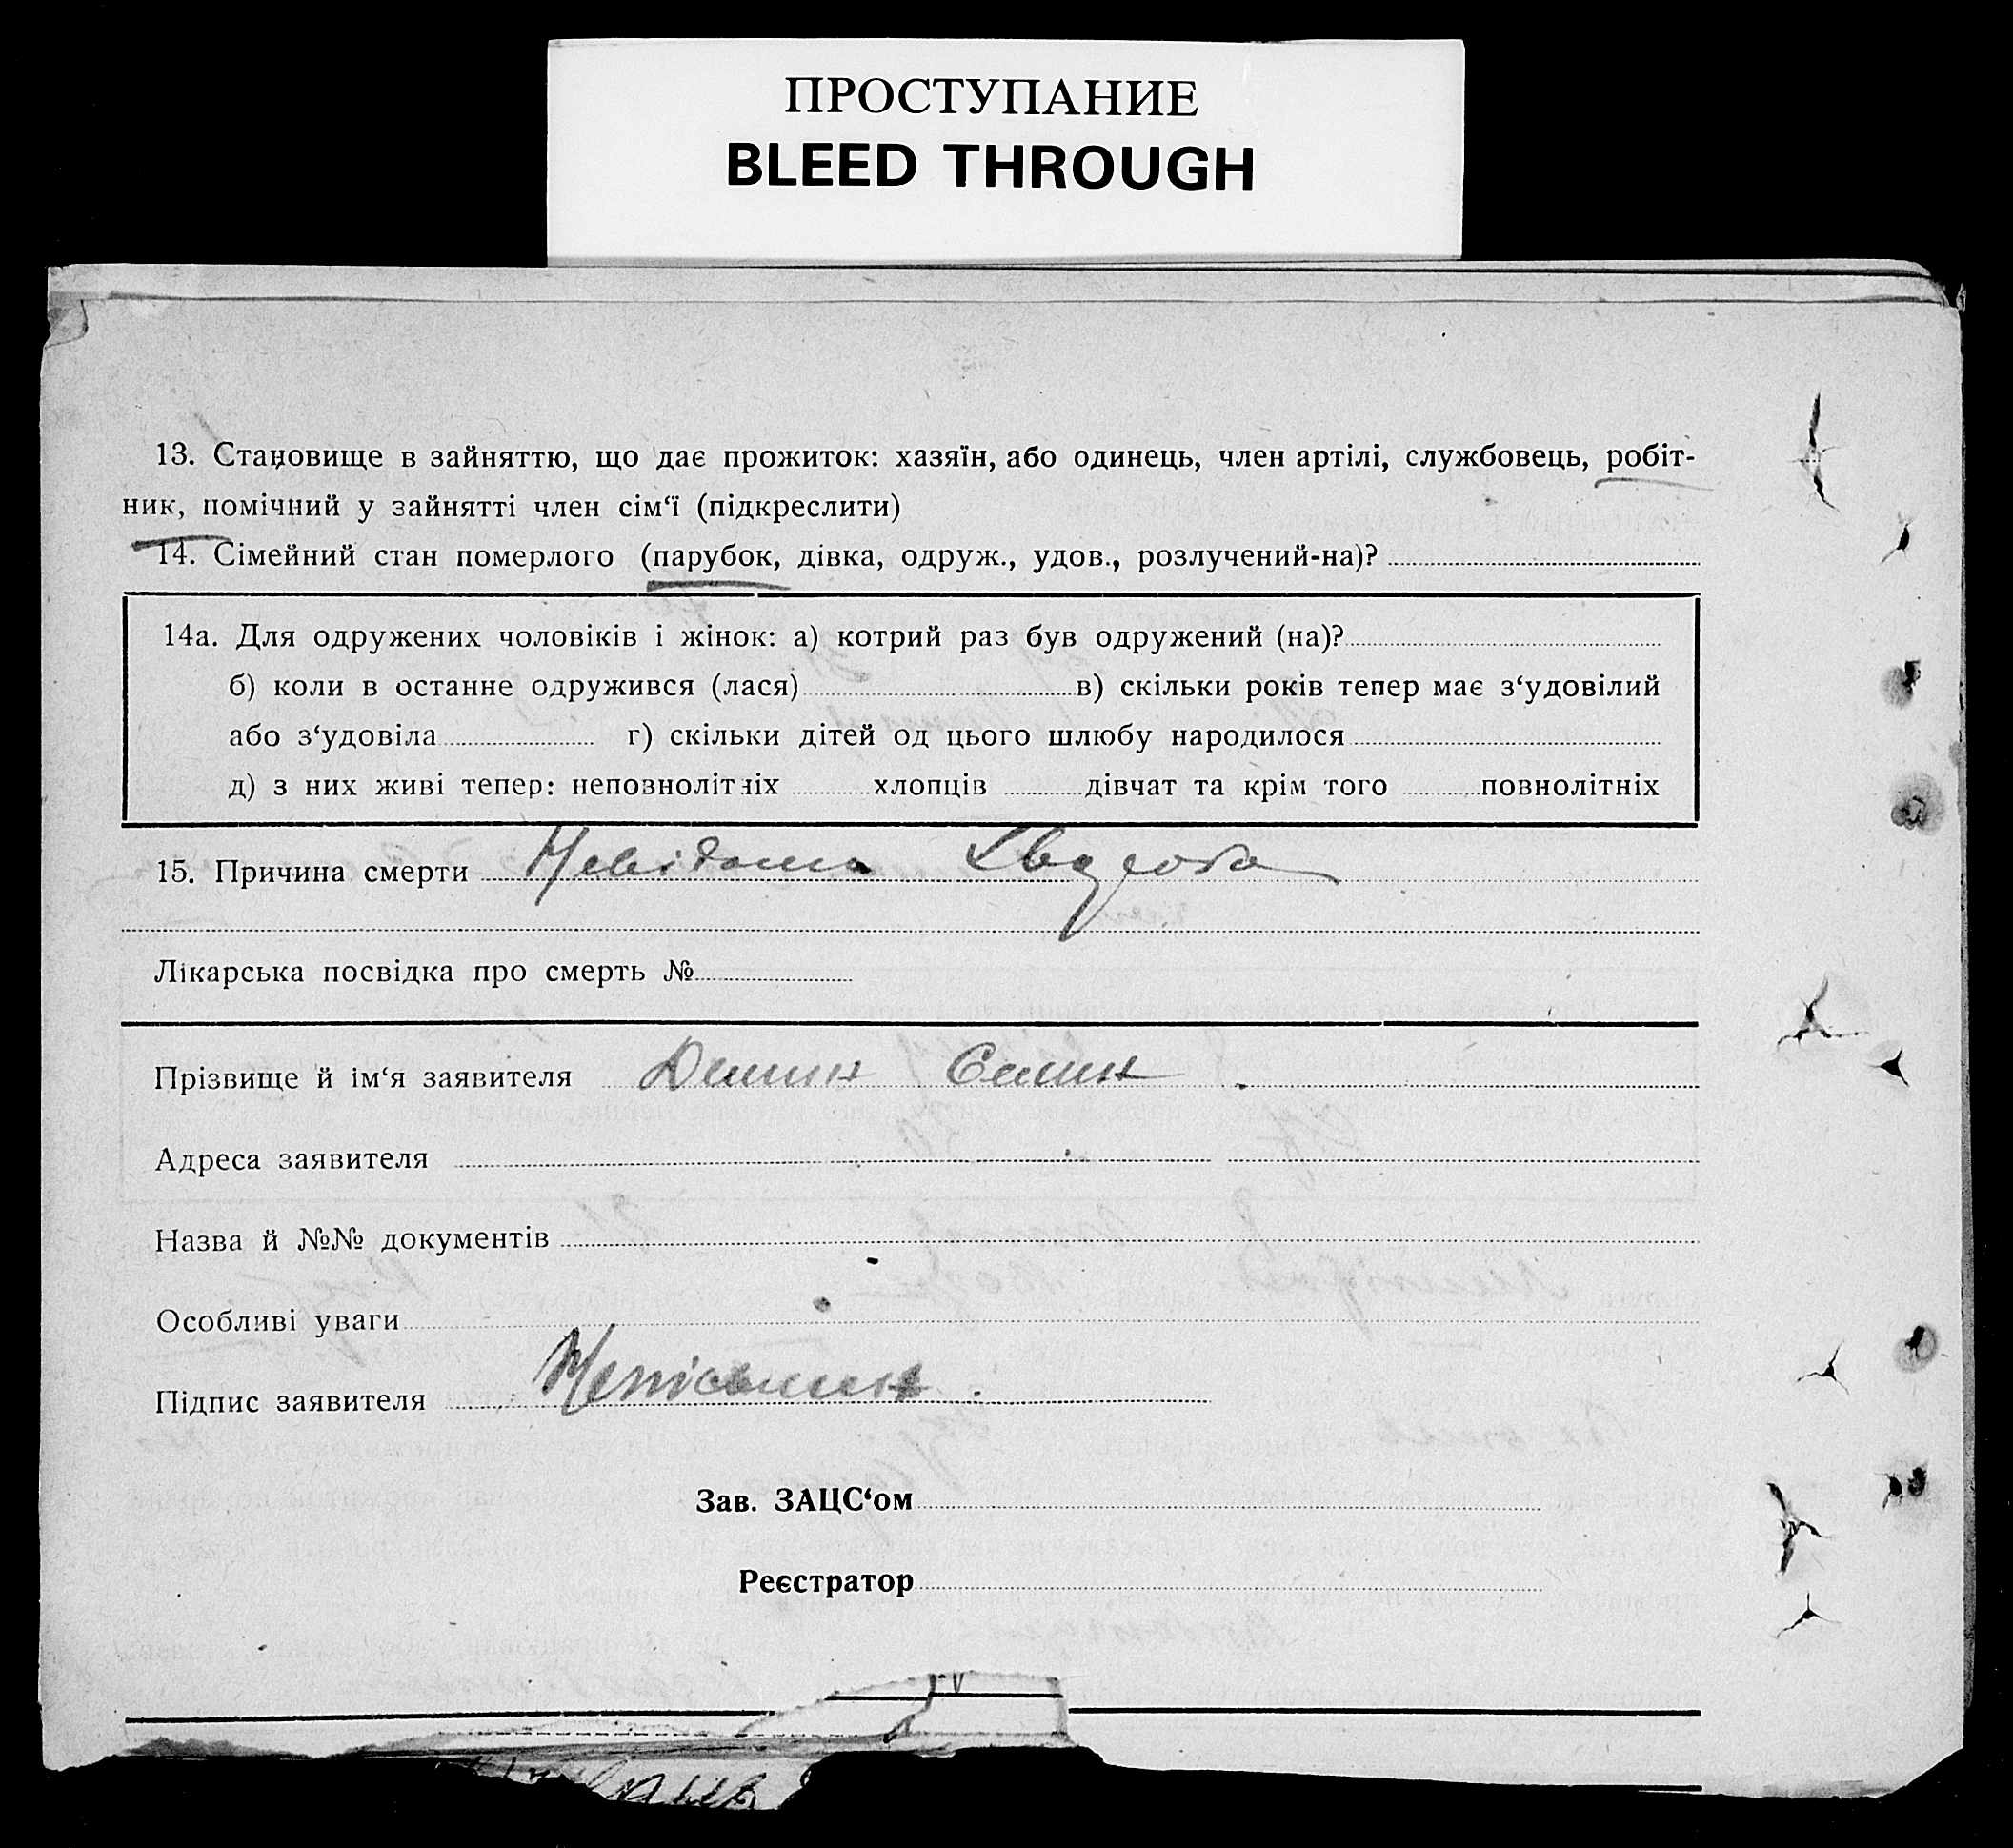 ПРОСТУПАНИЕ
BLEED THROUGH
13. Становище в зайняттю, що дає прожиток: хазяїн, або одинець, член артілі, службовець, робіт-
ник, помічний у зайнятті член сім‘ї (підкреслити)
14. Сімейний стан померлого (парубок, дівка, одруж., удов., розлучений-на)?
14а. Для одружених чоловіків і жінок: а) котрий раз був одружений (на)?
б) коли в останне одружився (лася) в) скільки років тепер має з‘удовілий
або з‘удовіла г) скільки дітей од цього шлюбу народилося
д) з них живі тепер: неповнолітніх хлопців дівчат та крім того повнолітніх
15. Причина смерти Невідома
Лікарська посвідка про смерть №
Прізвище й ім‘я заявителя
Адреса заявителя
Назва й №№ документів
Особливі уваги
Підпис заявителя
Зав. ЗАЦС‘ом
Реєстратор